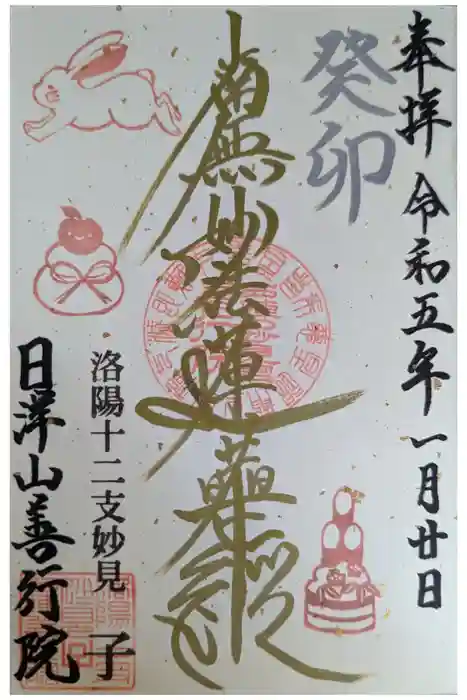 奉拝 令和五年一月廿日
癸卯
南無妙法蓮華經
洛陽十二支妙見 子
日澤山善行院